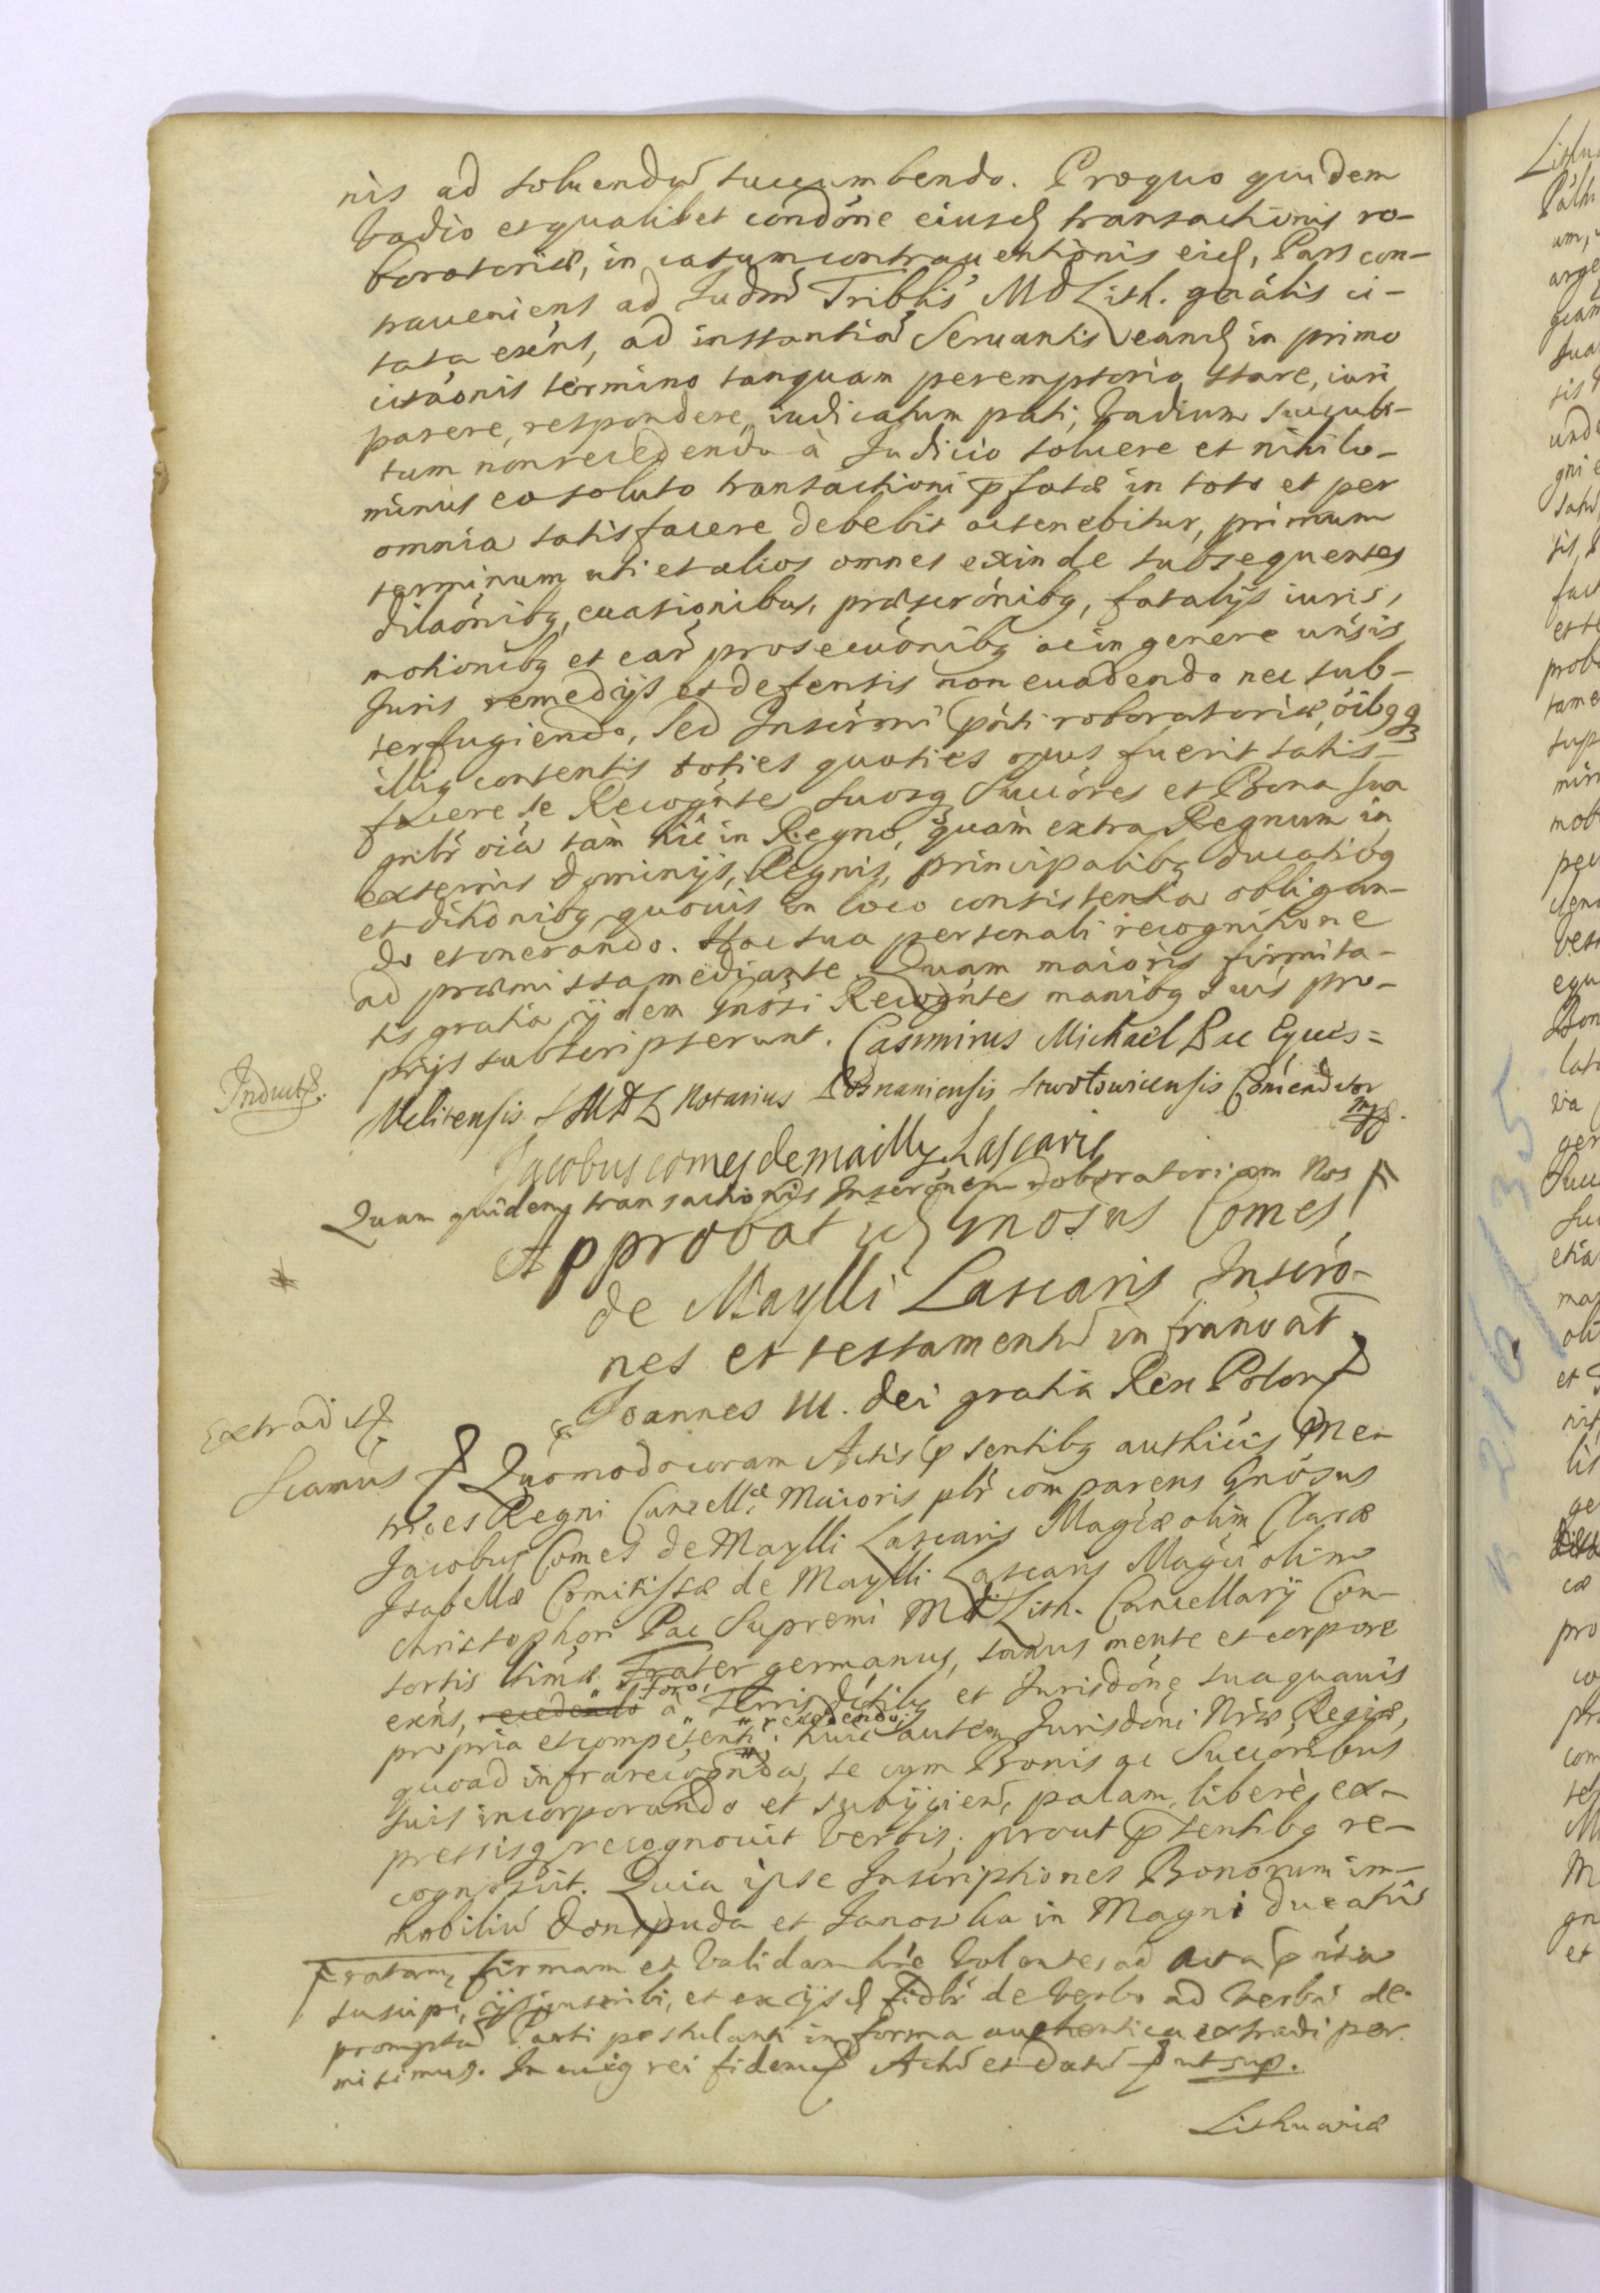 nis ad soluendū succumbendo. Pro quo quidem
vadio et qualibet condōne eiusd transactionis ro-
boratoriæ, in casum contrauentionis eid, Pars con-
traueniens ad Judm̄ Triblis MDLith. gnālis ci-
tata exēns, ad instantiā Seruantis eand in primo
citāonis termino tanquam peremptorio stare, iuri
parere, respondere, iudicatum pati, vadium succubi-
tum non recedendo à Judicio soluere et nihilo-
minus eo soluto transactioni pfatæ in toto et per
omnia satisfacere debebit ac tenebitur, primum
terminum uti et alios omnes exinde subsequentes
dilaōnibq, euasionibus, præscrōnibq, fatalijs iuris,
motionibq et eār prosecuōnibq ac in genere uńsis
Juris remedijs et defensis non euadendo nec sub-
terfugiendo, sed Inscrōni pn̄ti roboratoriæ, ōibqq
illiq contentis toties quoties opus fuerit satis-
facere se Recogn̄tes suosq Succōres et Bona sua
gnlr̄ oīa tàm hic in Regno, quàm extra Regnum in
externis Dominijs, Regnis, principatibq Ducatibq
et ditiōnibq quouis in loco consistentia obligan-
do et onerando. Hac sua personali recognitione
ad præmissa mediante. Quam maioris firmita-
tis gratia ijdem Gnōsi Recogn̄tes manibq suis pro-
prijs subscripserunt. Casimirus Michaël Pac Eques
Melitensis MDL Notarius Posnaniensis Stwołowicensis Comendator
mp.
Induct.
Jacobus comes de mailly Lascaris
Quam quidem transactionis Inscrōnem roboratoriam Nos
Approbat id Gnōsus Comes
de Maylli Lascaris Inscrō-
nes et testamentū in frānoat
Joannes III. Dei gratia Rex Polon
Extradit
Scamus Quomodo coram Actis psentibq authicis Me-
trices Regni Cancellæ Maioris plr̄ comparens Gnōsus
Jacobus Comes de Maylli Lascaris Magcæ olim Claræ
Isabellæ Comitissæ de Maylli Lascaris Magci olim
Christophori Pac Supremi MDLith. Cancellarij Con-
sortis ltimæ Frater germanus, sanus mente et corpore
exēns, recedendo à Terris dictibq et Jurisdōne sua quauis
foro, recedendo
propria et competenti. huic autem Jurisdōni Nræ Regiæ,
quoad infra recogn̄da, se cum Bonis ac Succōribus
suis incorporando et subijcien̄, palam, liberè, ex-
pressisq recognouit verbis; prout psentibq re-
cognoscit. Quia ipse Inscriptiones Bonorum im-
mobiliū Dowspuda et Janowka in Magni Ducatūs
ratam, firmam et validam hr̄e volentes ad Acta pn̄tia
suscipi, ijs inscribi, et ex ijsd fidlr̄ de verbo ad verbū de-
promptā Parti postulanti in forma authentica extradi per-
misimus. In cuiq rei fidem Actū et datū ut sup.
Lithuaniæ